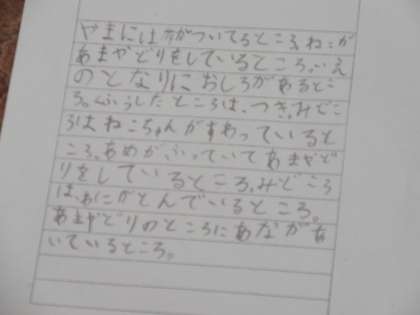 やまにはがついてるところ、ねこが
あまやどりをしているところ。いえ
のとなりにおしろがあるとこ
ろ。ふうしたところは、つき、みどこ
ろはねこちゃんがすわっていると
ころ、あめがふっていてあまやど
りをしているところ。みどころ
は、おにがとんでいるところ。
あまやどりのところにあながあ
いているところ。